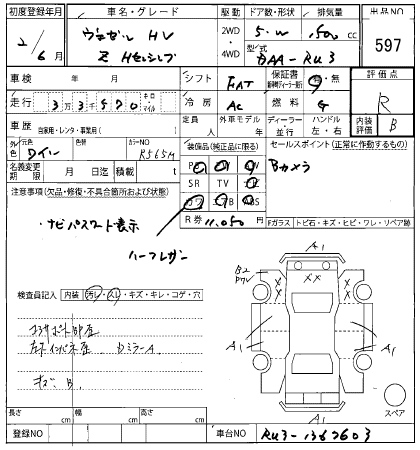 初度登録年月 車名・グレード 駆動 ドア数・形状 排気量 出品NO
2/6 月 ヴェゼル HV 2WD 5.W 1500 cc 597
Z Hセンシング ・4WD 型式 DAA-RU3
車検 年 月 シフト FAT 保証書 有・無 評価点
走行 33970 キロ マイル 冷房 AC 燃料 G R
車歴 自家用・レンタ・事業用( ) 定員 人 外車モデル 年 ディーラー 並行 ハンドル 左・右 内装評価 B
外色 元色 ワイン 色替 カラーNO R565M 装備品(純正品に限る) セールスポイント(正常に作動するもの)
名義変更期限 月 日迄 積載 t SR TV Bカメラ
注意事項(欠品・修復・不具合箇所および状態) カワ エアB ABS
ナビパスワード表示 R券 11,050 円 Fガラス トビ石・キズ・ヒビ・ワレ・リペア跡
ハーフレザー
A1
B2
XX
検査員記入 内装 汚レ・スレ・キズ・キレ・コゲ・穴
A1 A1
コアサポート
キズ B
A1
スペア
長さ cm 幅 cm 高さ cm
登録NO 車台NO RU3-1362603